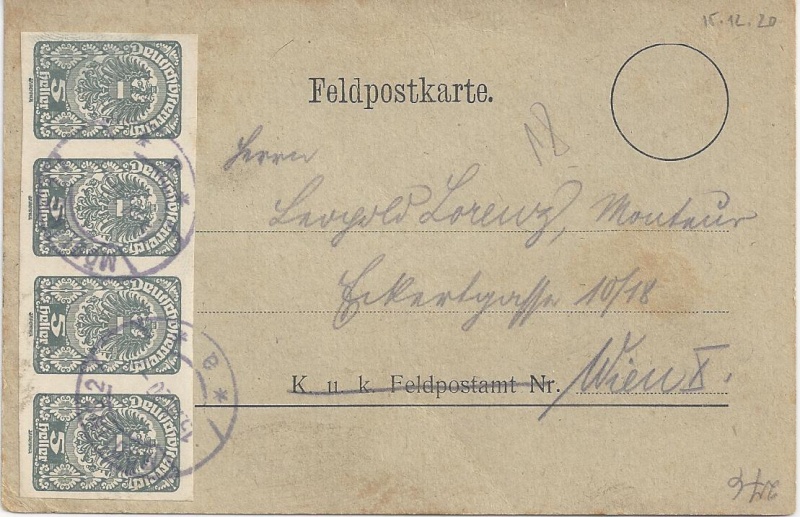 15.12.20
Feldpostkarte.
18
Herrn
Leopold Lorenz, Monteur
Eckertgasse 10/18
K. u. k. Feldpostamt Nr. Wien X.
Deutschösterreich
5
Heller
Deutschösterreich
5
Heller
Deutschösterreich
5
Heller
Deutschösterreich
5
Heller